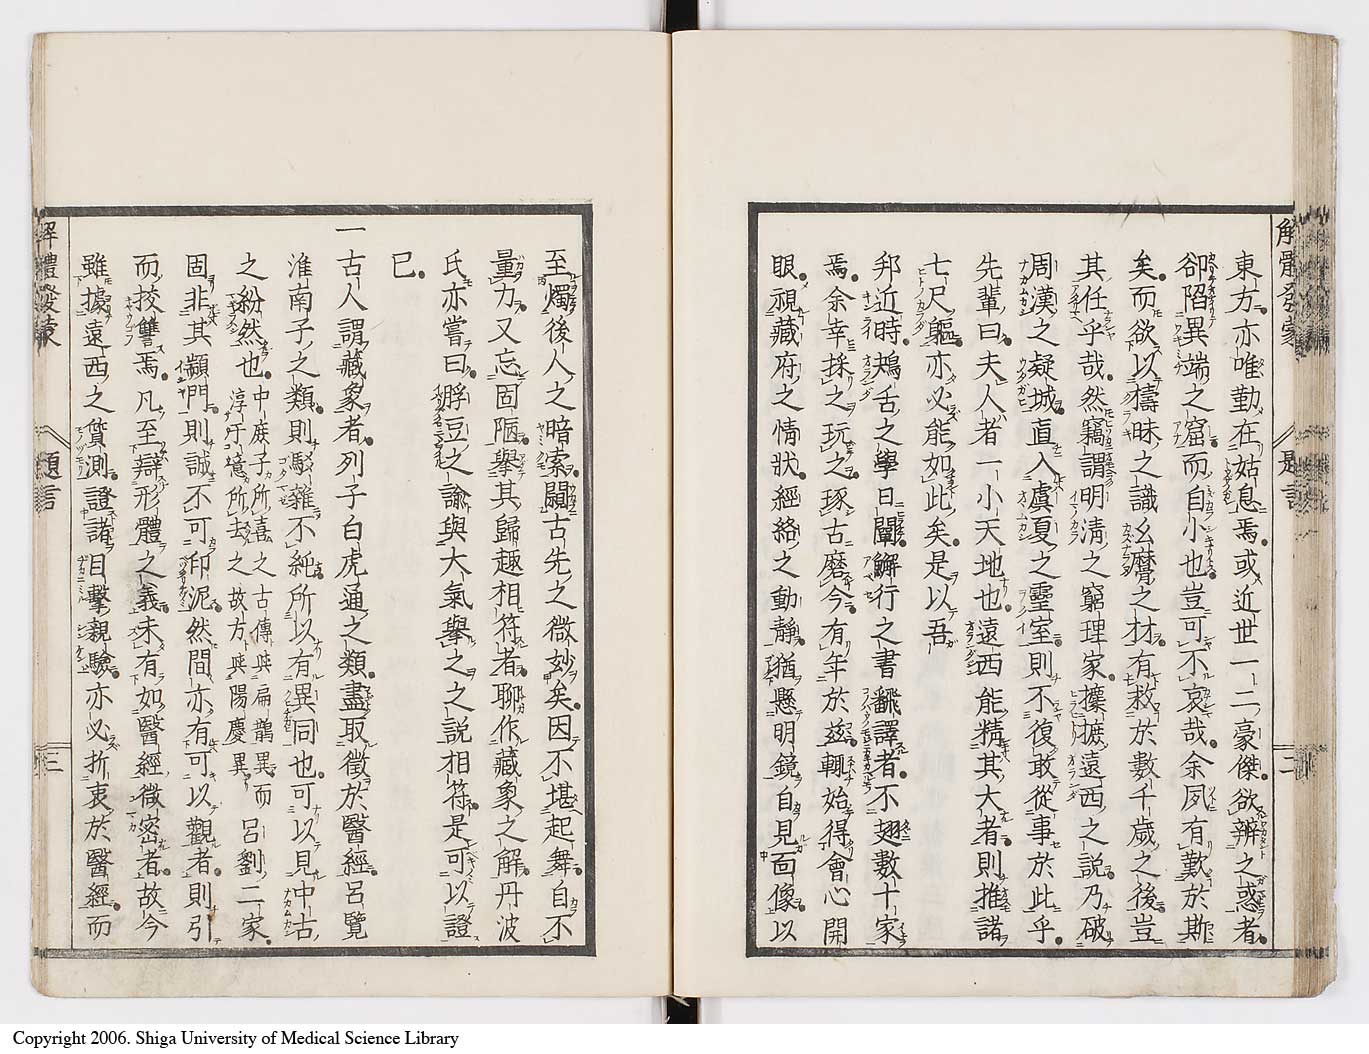 解體發蒙 題言 二
東方亦唯勤在姑息焉或近世一二豪傑欲辨之惑者
卻陷異端之窟而自小也豈可不哀哉余夙有歎於斯
矣而欲以擣昧之識幺麿之材有救於數千歲之後豈
其任乎哉然竊謂明淸之窮理家攗摭遠西之説乃破
周漢之疑城直入虞夏之靈室則不復敢從事於此乎
先輩曰夫人者一小天地也遠西能精其大者則推諸
七尺軀亦必能如此矣是以吾
邦近時鴂舌之學日闡解行之書飜譯者不翅數十家
焉余幸採之玩之琢古磨今有年於茲輒始得會心開
眼視藏府之情狀經絡之動靜猶懸明鏡自見面像以
至燭後人之暗索闢古先之微玅矣因不堪起舞自不
量力又忘固陋擧其歸趣相符者聊作藏象之解丹波
氏亦嘗曰脬豆之諭與大氣擧之之説相符是可以證
已
一古人謂藏象者列子白虎通之類盡取徵於醫經呂覽
淮南子之類則駁雜不純所以有異同也可以見中古
之紛然也中庶子所喜之古傳與扁鵲異而呂劉二家
淳于意所去之故方與陽慶異
固非其顓門則誠不可印泥然間亦有可以觀者則引
而挍讐焉凡至辯形體之義未有如醫經徵密者故今
雖據遠西之質測證諸目擊親驗亦必折衷於醫經而
解體發蒙 題言 三
Copyright 2006. Shiga University of Medical Science Library